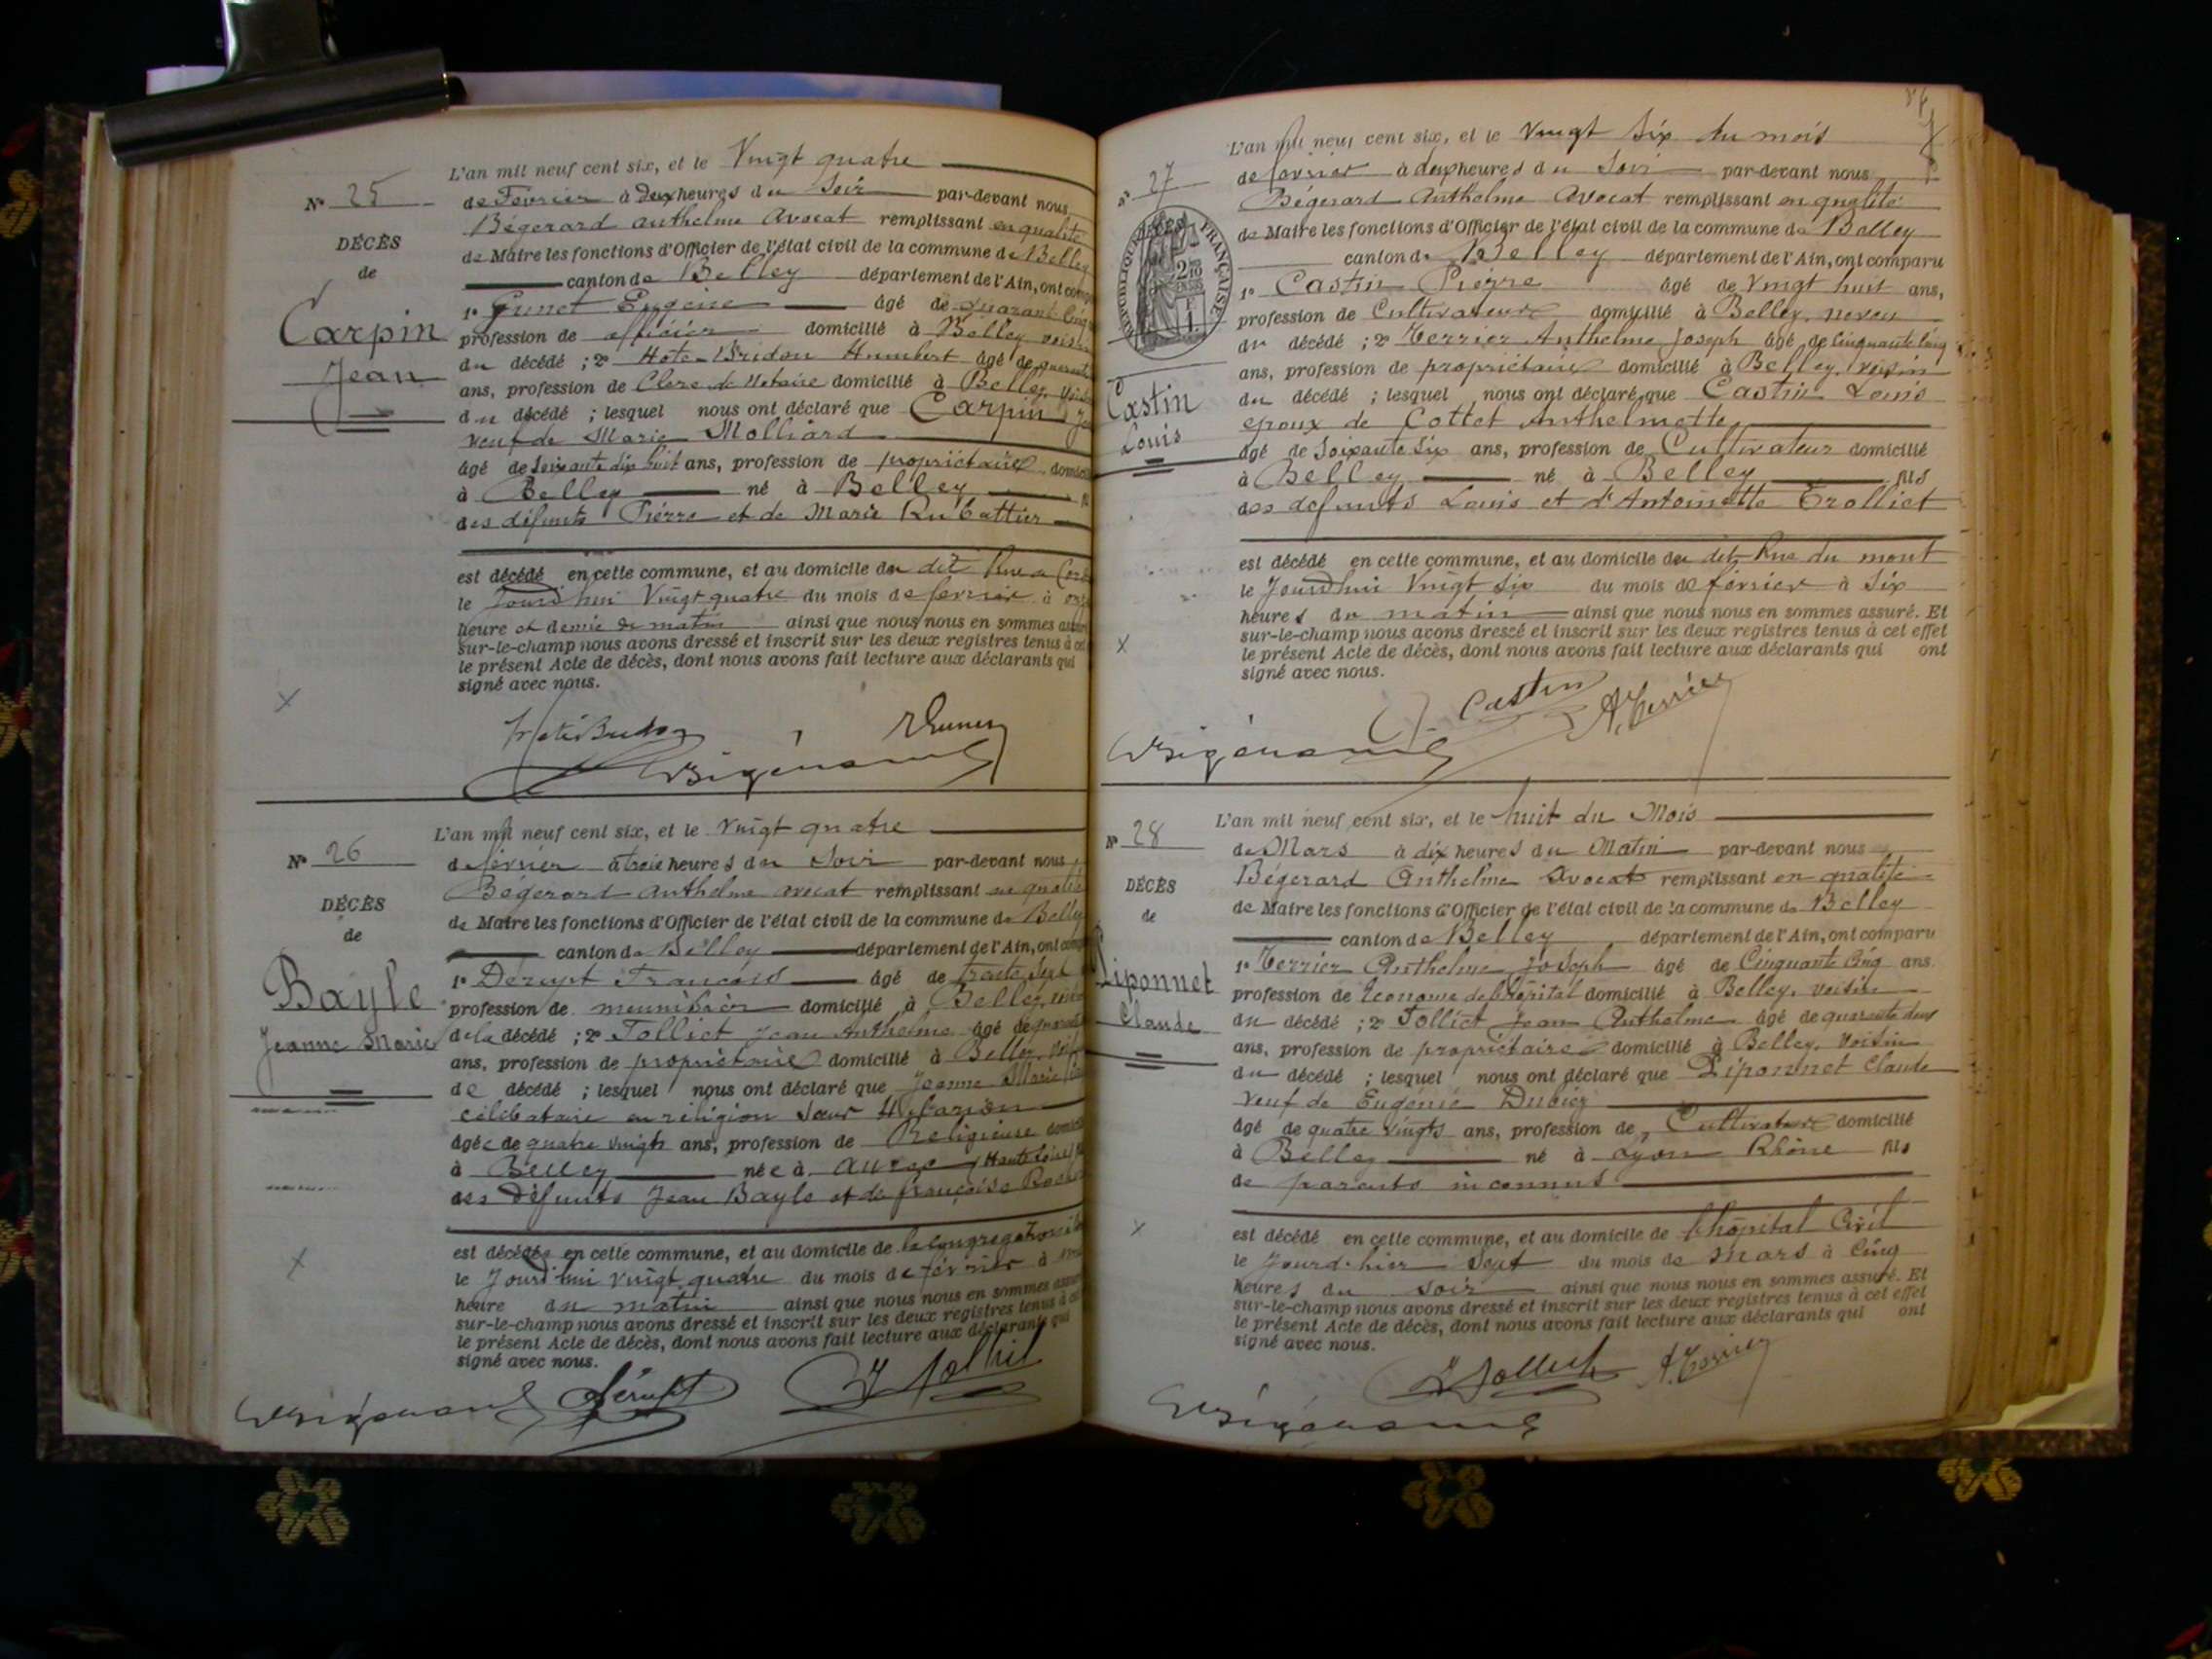 N° 25
DÉCÈS
de
Carpin
Jean
L'an mil neuf cent six, et le Vingt quatre
de Février à deux heures du Soir par-devant nous
Bégerard Anthelme Avocat remplissant en qualité
de Maire les fonctions d'Officier de l'état civil de la commune de Belley
canton de Belley département de l'Ain, ont
1° Eugène âgé de quarante cinq
profession de officier domicilié à Belley voisin
du décédé ; 2° Hote-Bridon Humbert âgé de quarante
ans, profession de Clerc de Notaire domicilié à Belley,
du décédé ; lesquel nous ont déclaré que Carpin
veuf de Marie Molliard
âgé de soixante dix huit ans, profession de propriétaire
à Belley né à Belley
des défunts Pierre et de Marie
est décédé en cette commune, et au domicile du dit Rue
le Jourd'hui Vingt quatre du mois de février à
heure et demie du matin ainsi que nous nous en sommes
sur-le-champ nous avons dressé et inscrit sur les deux registres tenus à
le présent Acte de décès, dont nous avons fait lecture aux déclarants qui
signé avec nous.
N° 26
DÉCÈS
de
Bayle
Jeanne Marie
L'an mil neuf cent six, et le Vingt quatre
de février à trois heures du Soir par-devant nous
Bégerard Anthelme avocat remplissant en qualité
de Maire les fonctions d'Officier de l'état civil de la commune de Belley
canton de Belley département de l'Ain, ont
1° Dérupt François âgé de trente sept
profession de menuisier domicilié à Belley,
de la décédé ; 2° Tolliet Jean Anthelme âgé de quarante
ans, profession de propriétaire domicilié à Belley,
de décédé ; lesquel nous ont déclaré que Jeanne Marie
célibataire en religion Sœur Hilarion
âgée de quatre vingts ans, profession de Religieuse
à Belley née à (Haute Loire)
des défunts Jean Bayle et de françoise
est décédée en cette commune, et au domicile de la congregation
le Jourd'hui vingt quatre du mois de février à
heure du matin ainsi que nous nous en sommes
sur-le-champ nous avons dressé et inscrit sur les deux registres tenus à
le présent Acte de décès, dont nous avons fait lecture aux déclarants qui
signé avec nous.
Dérupt
N° 27
RÉPUBLIQUE FRANÇAISE
Castin
Louis
L'an mil neuf cent six, et le Vingt six du mois
de février à deux heures du Soir par-devant nous
Bégerard Anthelme Avocat remplissant en qualité
de Maire les fonctions d'Officier de l'état civil de la commune de Belley
canton de Belley département de l'Ain, ont comparu
1° Castin Pierre âgé de Vingt huit ans,
profession de Cultivateur domicilié à Belley, neveu
du décédé ; 2° Terrier Anthelme Joseph âgé de Cinquante cinq
ans, profession de propriétaire domicilié à Belley, voisin
du décédé ; lesquel nous ont déclaré que Castin Louis
époux de Cottet Anthelmette
âgé de Soixante Six ans, profession de Cultivateur domicilié
à Belley né à Belley fils
des defunts Louis et d'Antoinette Trolliet
est décédé en cette commune, et au domicile du dit, Rue du mont
le Jourd'hui Vingt Six du mois de février à Six
heures du matin ainsi que nous nous en sommes assuré. Et
sur-le-champ nous avons dressé et inscrit sur les deux registres tenus à cet effet
le présent Acte de décès, dont nous avons fait lecture aux déclarants qui ont
signé avec nous.
Castin
A. Terrier
N° 28
DÉCÈS
de
Liponnet
Claude
L'an mil neuf cent six, et le huit du Mois
de Mars à dix heures du Matin par-devant nous
Bégerard Anthelme Avocat remplissant en qualité
de Maire les fonctions d'Officier de l'état civil de la commune de Belley
canton de Belley département de l'Ain, ont comparu
1° Terrier Anthelme Joseph âgé de Cinquante Cinq ans
profession de Econome de l'hôpital domicilié à Belley, voisin
du décédé ; 2° Tolliet Jean Anthelme âgé de quarante deux
ans, profession de propriétaire domicilié à Belley, Voisin
du décédé ; lesquel nous ont déclaré que Liponnet Claude
veuf de Eugénie
âgé de quatre vingts ans, profession de Cultivateur domicilié
à Belley né à Lyon Rhône fils
de parents inconnus
est décédé en cette commune, et au domicile de l'hôpital Civil
le Jourd-hier Sept du mois de Mars à Cinq
heures du soir ainsi que nous nous en sommes assuré. Et
sur-le-champ nous avons dressé et inscrit sur les deux registres tenus à cet effet
le présent Acte de décès, dont nous avons fait lecture aux déclarants qui ont
signé avec nous.
A. Terrier